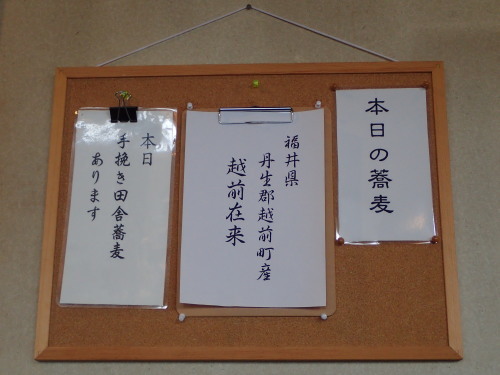 本日の蕎麦
福井県
丹生郡越前町産
越前在来
本日
手挽き田舎蕎麦
あります